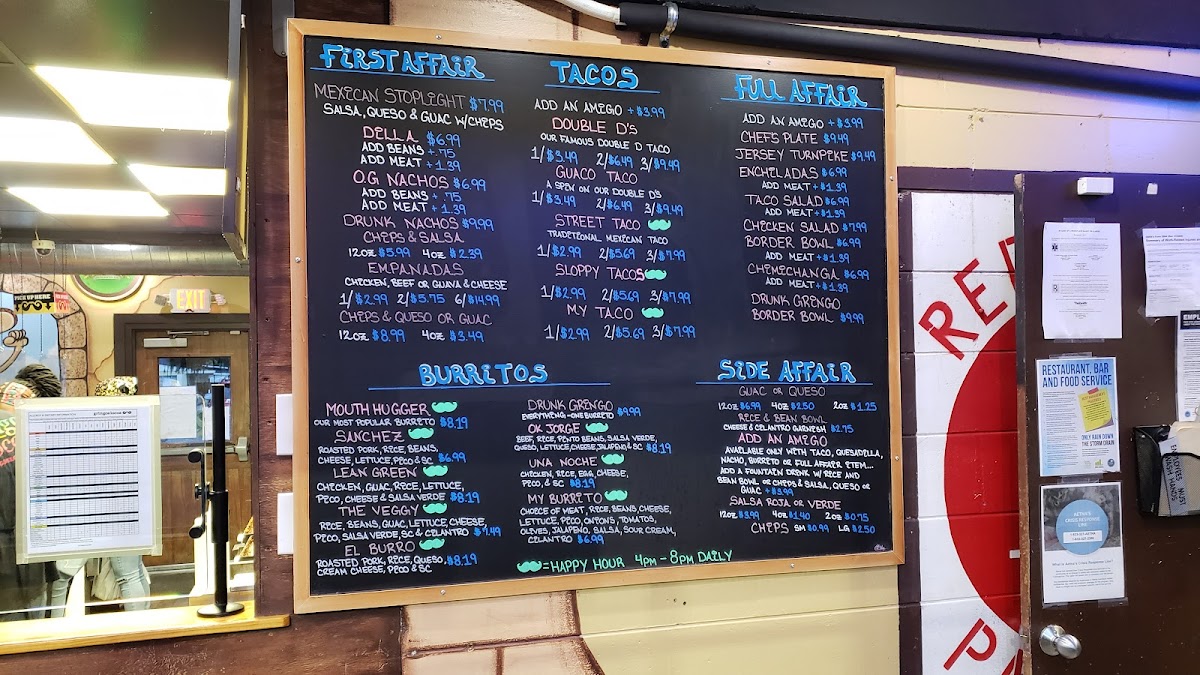 FIRST AFFAIR
MEXICAN STOPLIGHT $7.99
SALSA, QUESO & GUAC W/CHIPS
DILLA $6.99
ADD BEANS + .75
ADD MEAT + 1.39
O.G NACHOS $6.99
ADD BEANS + .75
ADD MEAT + 1.39
DRUNK NACHOS $9.99
CHIPS & SALSA
12oz $5.99 4oz $2.39
EMPANADAS
CHICKEN, BEEF OR GUAVA & CHEESE
1/$2.99 2/$5.75 6/$14.99
CHIPS & QUESO OR GUAC
12oz $8.99 4oz $3.49
TACOS
ADD AN AMIGO + $3.99
DOUBLE D'S
OUR FAMOUS DOUBLE D TACO
1/$3.49 2/$6.49 3/$9.49
GUACO TACO
A SPIN ON OUR DOUBLE D'S
1/$3.49 2/$6.49 3/$9.49
STREET TACO
TRADITIONAL MEXICAN TACO
1/$2.99 2/$5.69 3/$7.99
SLOPPY TACOS
1/$2.99 2/$5.69 3/$7.99
MY TACO
1/$2.99 2/$5.69 3/$7.99
FULL AFFAIR
ADD AN AMIGO + $3.99
CHEFS PLATE $9.49
JERSEY TURNPIKE $9.49
ENCHILADAS $6.99
ADD MEAT + $1.39
TACO SALAD $6.99
ADD MEAT + $1.39
CHICKEN SALAD $7.99
BORDER BOWL $6.99
ADD MEAT + $1.39
CHIMICHANGA $6.99
ADD MEAT + $1.39
DRUNK GRINGO
BORDER BOWL $9.99
BURRITOS
MOUTH HUGGER
OUR MOST POPULAR BURRITO $8.19
SANCHEZ
ROASTED PORK, RICE, BEANS,
CHEESE, LETTUCE, PICO & SC $6.99
LEAN GREEN
CHICKEN, GUAC, RICE, LETTUCE,
PICO, CHEESE & SALSA VERDE $8.19
THE VEGGY
RICE, BEANS, GUAC, LETTUCE, CHEESE,
PICO, SALSA VERDE, SC & CILANTRO $7.49
EL BURRO
ROASTED PORK, RICE, QUESO, $8.19
CREAM CHEESE, PICO & SC
DRUNK GRINGO
EVERYTHING-ONE BURRITO $9.99
OK JORGE
BEEF, RICE, PINTO BEANS, SALSA VERDE,
QUESO, LETTUCE, CHEESE, JALAPENO & SC $8.19
UNA NOCHE
CHICKEN, RICE, EGG, CHEESE,
PICO, & SC $8.19
MY BURRITO
CHOICE OF MEAT, RICE, BEANS, CHEESE,
LETTUCE, PICO, ONIONS, TOMATOS,
OLIVES, JALAPENO, SALSA, SOUR CREAM,
CILANTRO $6.99
= HAPPY HOUR 4PM - 8PM DAILY
SIDE AFFAIR
GUAC OR QUESO
12oz $6.99 4oz $2.50 2oz $1.25
RICE & BEAN BOWL
CHEESE & CILANTRO GARNISH $2.75
ADD AN AMIGO
AVAILABLE ONLY WITH TACO, QUESADILLA,
NACHO, BURRITO OR FULL AFFAIR ITEM...
ADD A FOUNTAIN DRINK W/ RICE AND
BEAN BOWL OR CHIPS & SALSA, QUESO OR
GUAC + $3.99
SALSA ROJA OR VERDE
12oz $3.99 4oz $1.40 2oz $0.75
CHIPS SM $0.99 LG $2.50
PICK UP HERE
EXIT
RESTAURANT, BAR
AND FOOD SERVICE
ONLY RAIN DOWN
THE STORM DRAIN
EMPLOYEES MUST
WASH HANDS